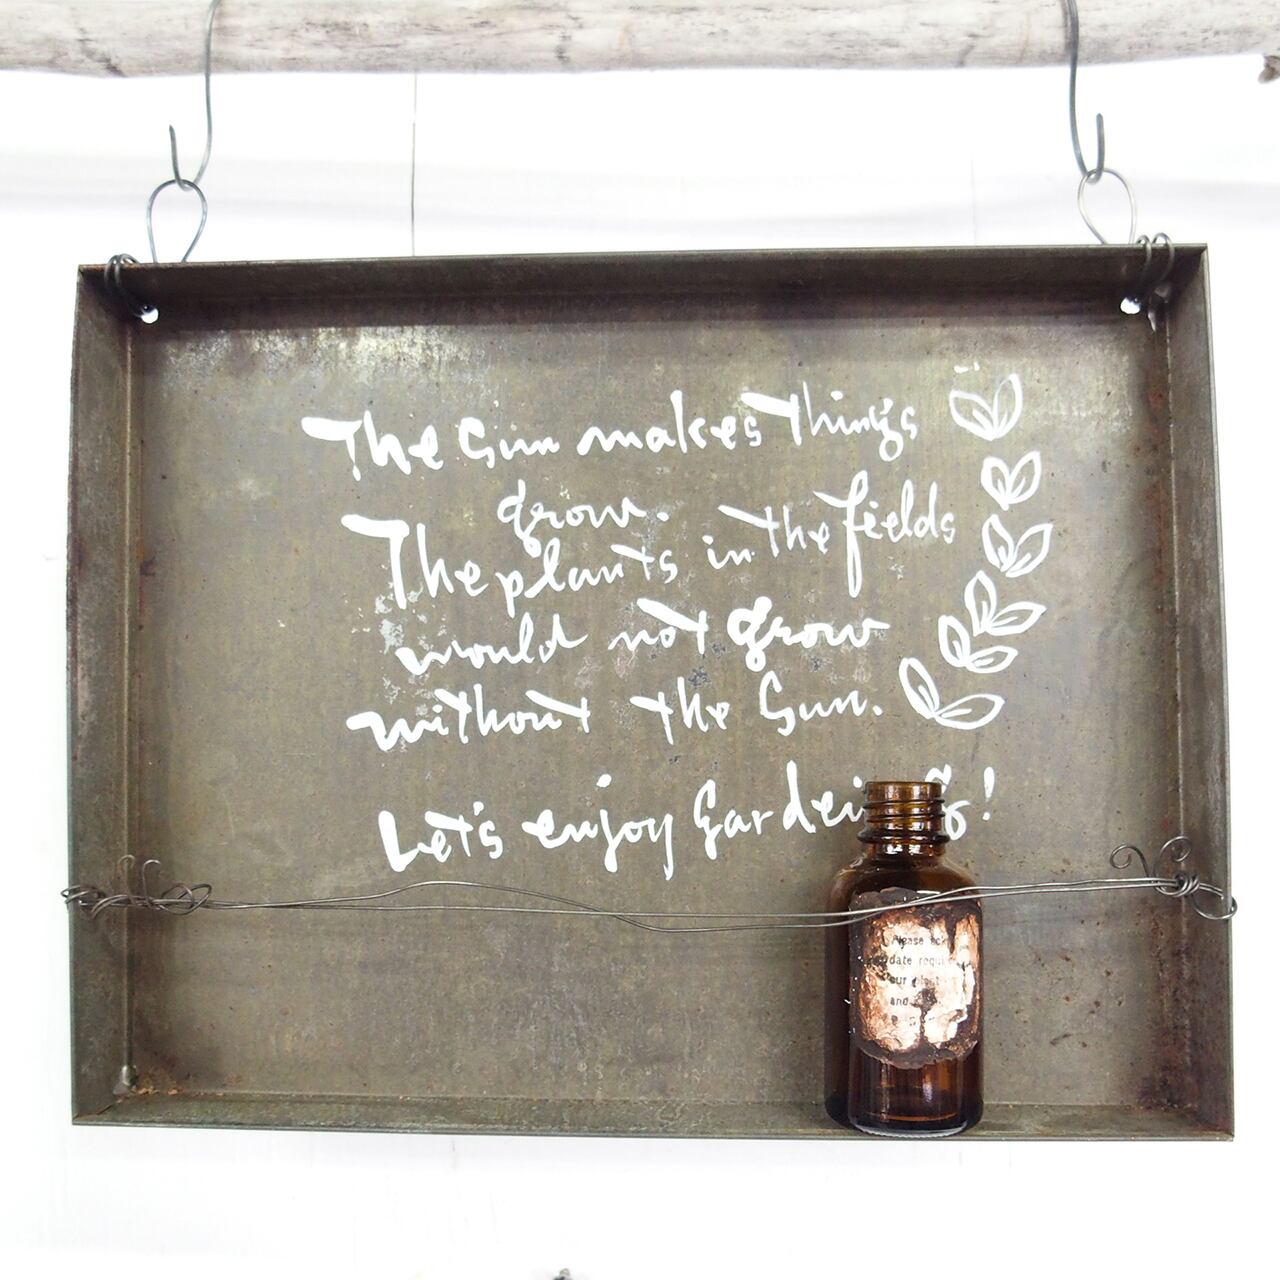 The Sun makes Things
grow.
The plants in the fields
would not grow
without the Sun.
Let's enjoy Gardening!
Please ack
date requi
our
and